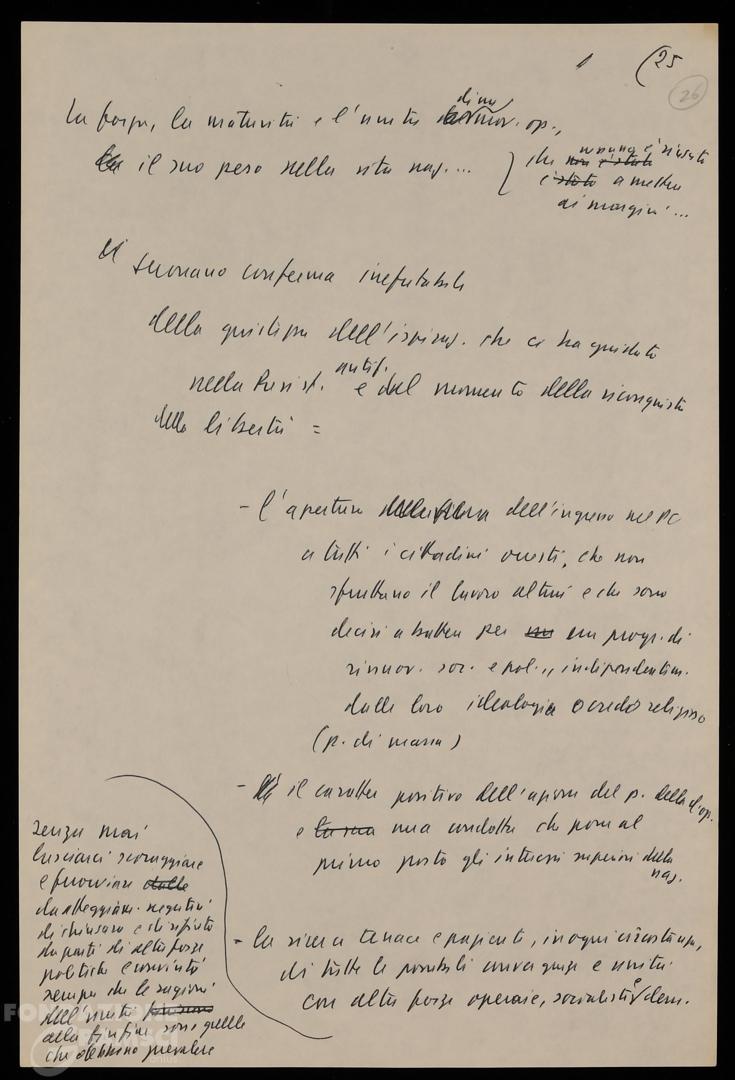 1 (25
26
La forza, la maturità e l'unità di un mov. op.,
il suo peso nella vita naz. ... } che nessuno è riuscito
a mettere
ai margini ...
suonano conferma irrefutabile
della giustezza dell'ispiraz. che ci ha guidato
nella Resist. antif. e dal momento della riconquista
della libertà =
- l'apertura dell'ingresso nel PC
a tutti i cittadini onesti, che non
sfruttano il lavoro altrui e che sono
decisi a battersi per un progr. di
rinnov. soc. e pol., indipendentem.
dalle loro ideologia o credo religioso
(p. di massa)
- il carattere positivo dell'azione del p. della cl. op.
e una condotta che pone al
primo posto gli interessi superiori della
naz.
- la ricerca tenace e paziente, in ogni circostanza,
di tutte le possibili convergenze e unità
con altre forze operaie, socialiste e dem.
senza mai
lasciarci scoraggiare
e fuorviare
da atteggiam. negativi
di chiusura e di rifiuto
da parte di altre forze
politiche e convinti
sempre che le ragioni
dell'unità
alla fin fine sono quelle
che debbono prevalere
FONDAZIONE
GRAMSCI